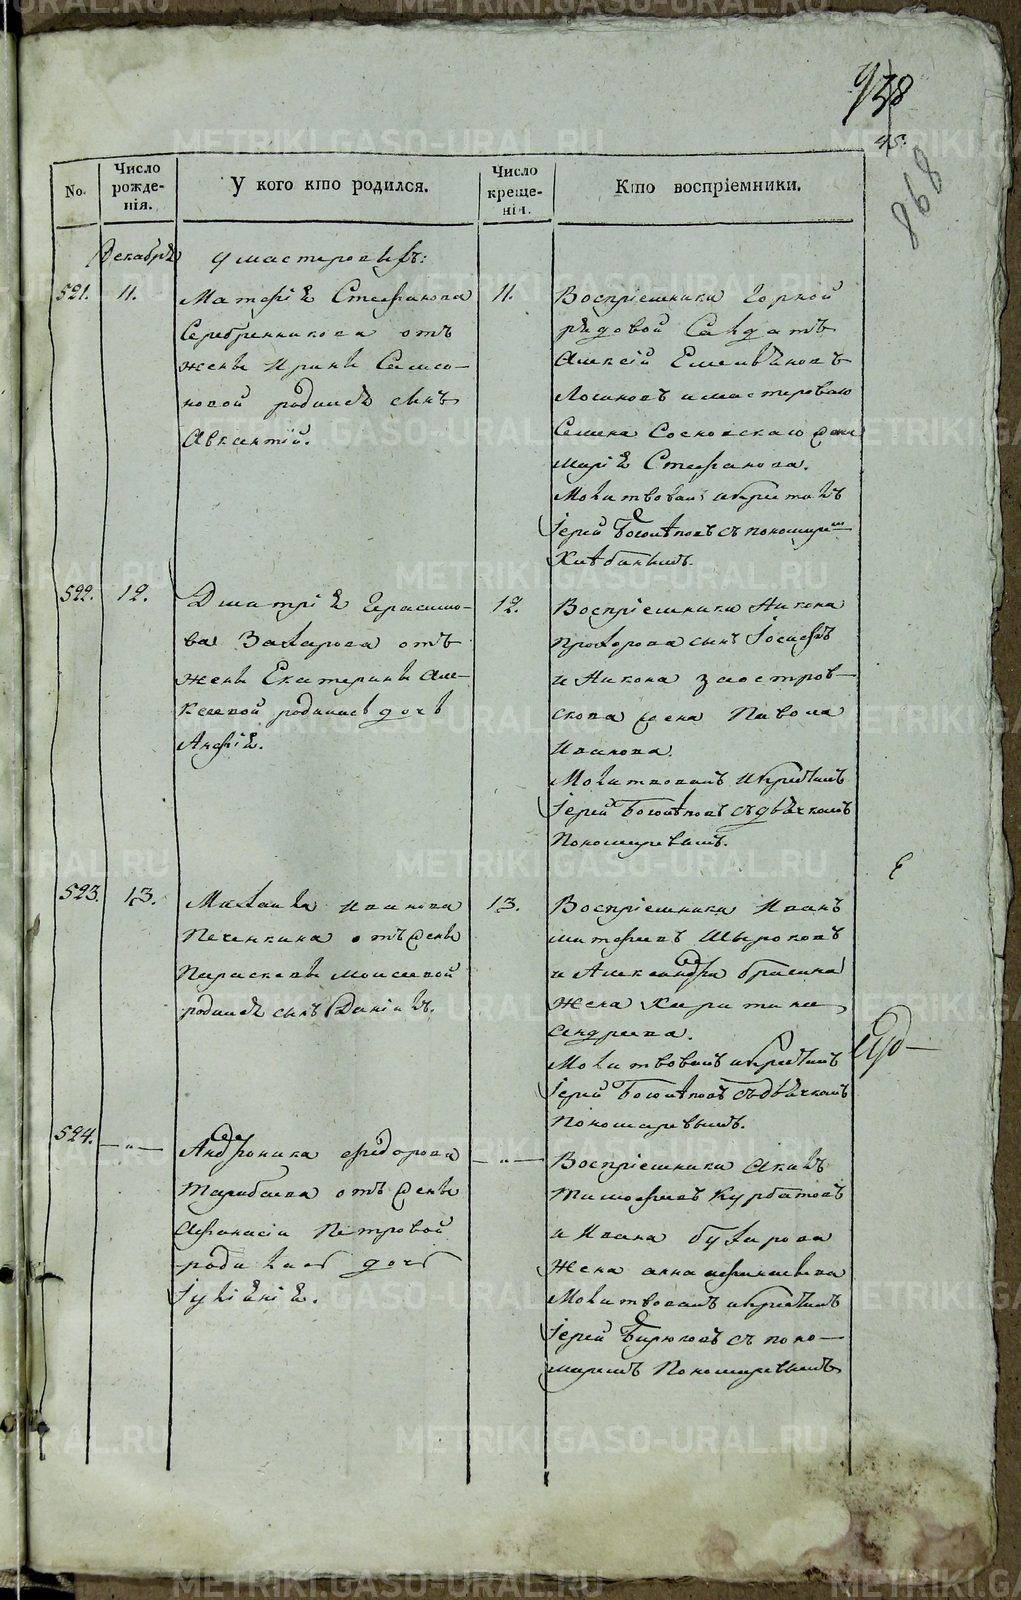 938
45.
868
No.
Число рожде-нія.
У кого кто родился.
Число креще-нія.
Кто воспріемники.
Декабрь
У мастеровыхъ:
521.
11.
Матфія Стефанова
Серебренникова отъ
жены Ирины Самсо-
новой родился сынъ
Авксентій.
11.
Воспріемники горной
рядовой Салдатъ
Алексій Емельяновъ
Логиновъ и мастероваго
Семена Сосновскаго жена
Марія Стефанова.
Молитвовалъ и крестилъ
Іерей с пономаремъ
522.
12.
Дмитрія Герасимо-
ва Захарова отъ
жены Екатерины Але-
ксеевой родилась дочь
Анфія.
12.
Воспріемники Никона
Прохорова сынъ Іосифъ
и Никона Заостров-
скова жена
Иванова.
Молитвовалъ и крестилъ
Іерей съ дьячкомъ
Пономаревымъ.
523.
13.
Михаила Иванова
Печенкина отъ жены
Параскевы Моисеевой
родился сынъ Даніилъ.
13.
Воспріемники Иванъ
Матфеевъ Широковъ
и Александра Брагина
жена Харитина
Андреева.
Молитвовалъ и крестилъ
Іерей съ дьячкомъ
Пономаревымъ.
524.
— „ —
Андроника Федорова
отъ жены
Афанасіи Петровой
родилась дочь
Іуліянія.
— „ —
Воспріемники Акимъ
Тимофеевъ Курбатовъ
и Ивана Бухарова
жена Анна Афанасьева
Молитвовалъ и крестилъ
Іерей Бирюковъ съ поно-
маремъ Пономаревымъ
METRIKI.GASO-URAL.RU